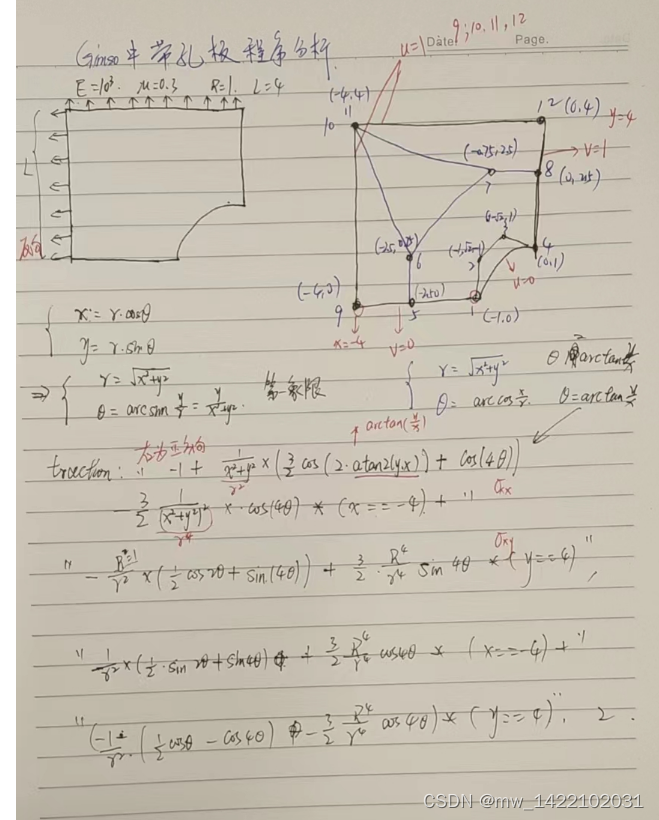 Gismo中带孔板程序分析.
Date 9,10,11,12 Page.
u=1
E=10³. μ=0.3 R=1. L=4
L
(-4,4)
11
10
12 (0,4)
y=4
(-0.75,2.5)
7
→ V=1
8 (0,2.5)
6
3
2
4
(0,1)
u=0
(-4,0)
9
5
(-2.5,0)
1
(-1,0)
x=-4
V=0
{ x = r·cosθ
y = r·sinθ
⇒ { r = √x²+y²
θ = arcsin y/r = y/√x²+y².
第一象限
{ r = √x²+y²
θ = arccos x/r. θ = arctan y/x
θ arctan y/x
↑ arctan(y/x)
traction: " -1 + 1/(x²+y²) × (3/2 cos(2·atan2(y,x)) + cos(4θ))
r²
- 3/2 1/(x²+y²)² × cos(4θ) * (x==-4) + " σxx
r⁴
" - R²=1/r² × (1/2 cos2θ + sin(4θ)) + 3/2 · R⁴/r⁴ sin4θ * (y==4) ",
σxy
" 1/r² × (1/2·sin2θ + sin4θ) + 3/2 R⁴/r⁴ cos4θ * (x==-4) + "
" (-1/r²·(1/2 cosθ - cos4θ) - 3/2 R⁴/r⁴ cos4θ) * (y==4)". 2.
CSDN @mw_1422102031